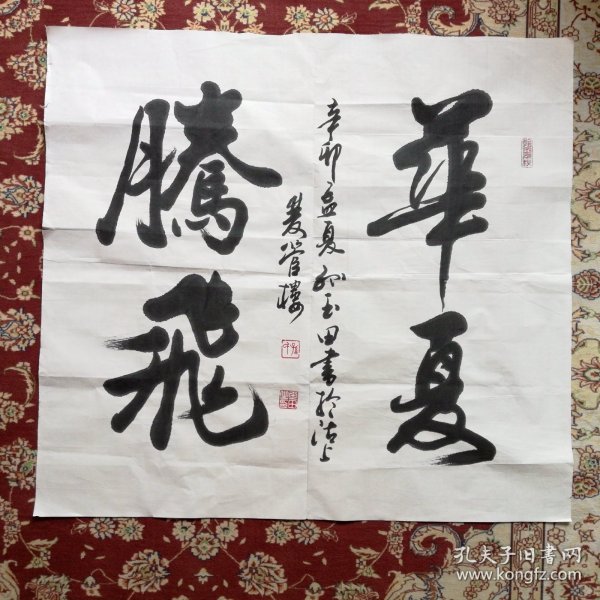 華夏
騰飛
辛卯孟夏孙玉田書於沽上
雙管樓
孔夫子旧书网
www.kongfz.com